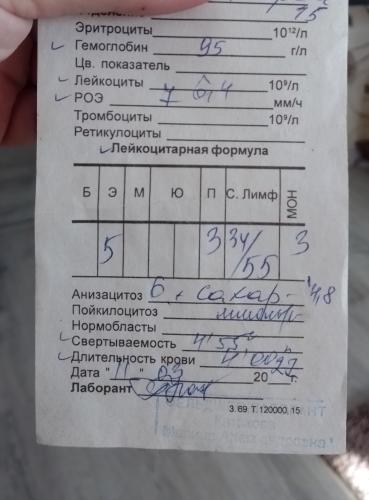 75
Эритроциты 10¹²/л
Гемоглобин 95 г/л
Цв. показатель
Лейкоциты 6,4 10⁹/л
РОЭ 7 мм/ч
Тромбоциты 10⁹/л
Ретикулоциты
Лейкоцитарная формула
Б Э М Ю П С. Лимф МОН
5 3 34/55 3
Анизацитоз 6, сахар - 4,8
Пойкилоцитоз
Нормобласты
Свертываемость 4'55"
Длительность крови 4'00"
Дата "11" 03 2023 г.
Лаборант
З. 69. Т. 120000, 15.